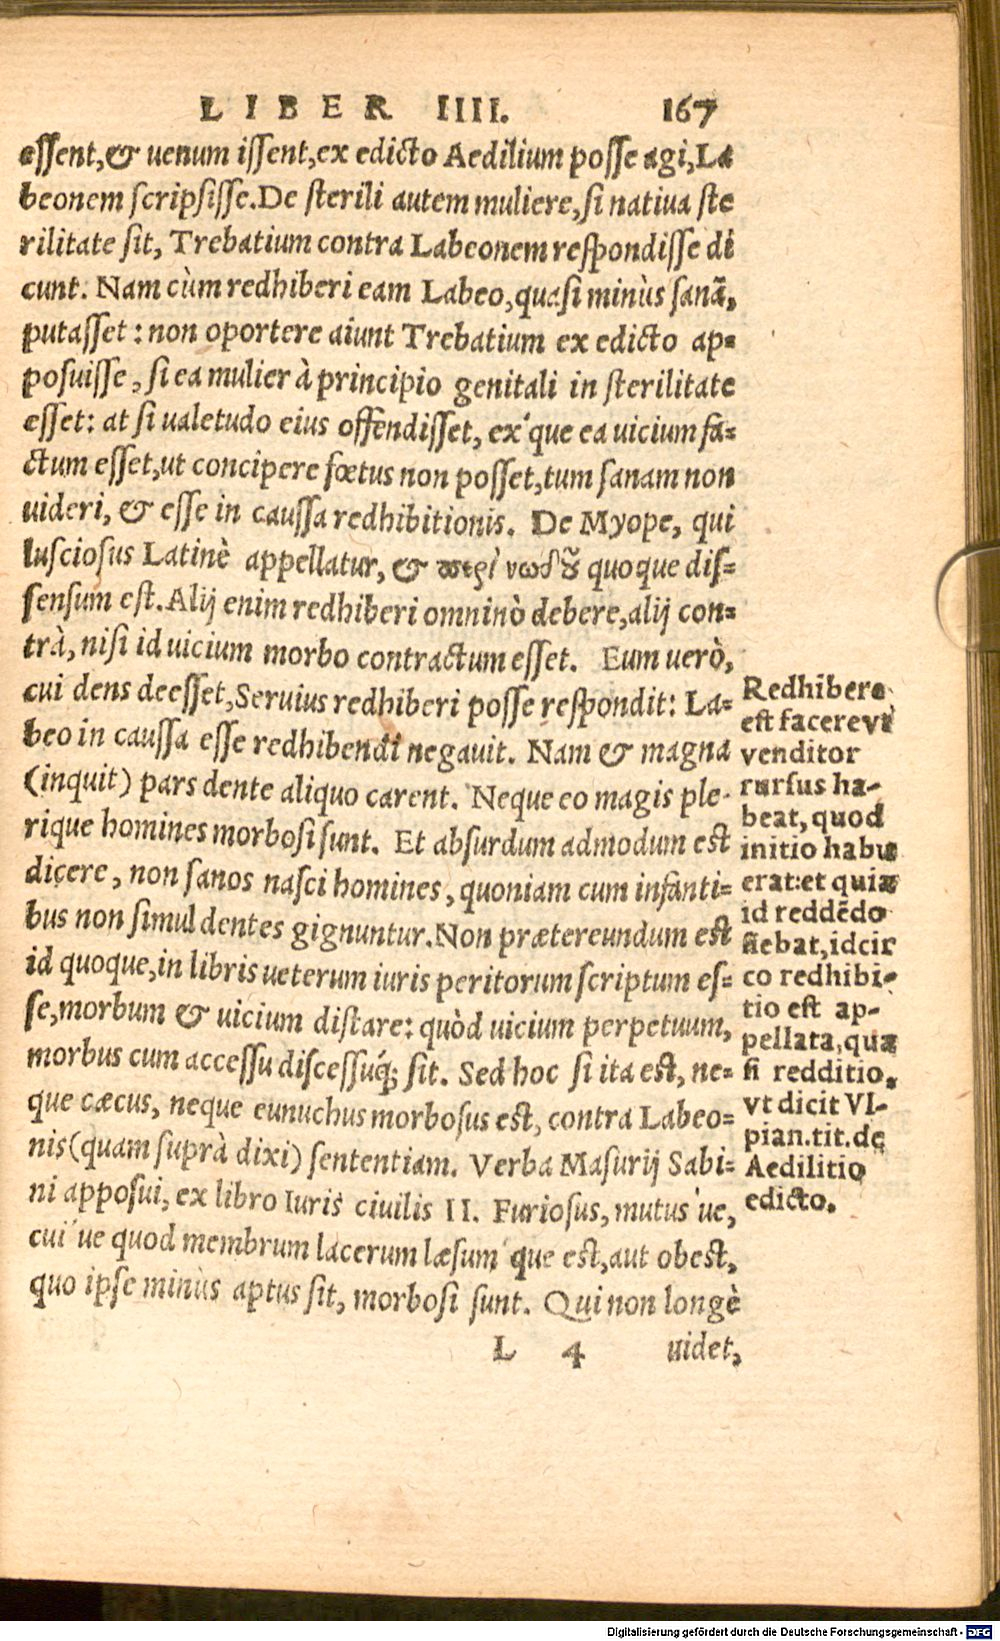 LIBER IIII. 167
essent,& uenum issent,ex edicto Aedilium posse agi,La
beonem scripsisse.De sterili autem muliere,si natiua ste
rilitate sit, Trebatium contra Labeonem respondisse di
cunt. Nam cùm redhiberi eam Labeo,quasi minùs sanã,
putasset : non oportere aiunt Trebatium ex edicto ap-
posuisse, si ea mulier à principio genitali in sterilitate
esset: at si ualetudo eius offendisset, ex'que ea uicium fa-
ctum esset,ut concipere fœtus non posset,tum sanam non
uideri, & esse in caussa redhibitionis. De Myope, qui
lusciosus Latinè appellatur, & περὶ νωδȣ͂ quoque dis-
sensum est.Alij enim redhiberi omninò debere,alij con-
trà, nisi id uicium morbo contractum esset. Eum uerò,
cui dens deesset,Seruius redhiberi posse respondit: La-
beo in caussa esse redhibendi negauit. Nam & magna
(inquit) pars dente aliquo carent. Neque eo magis ple-
rique homines morbosi sunt. Et absurdum admodum est
dicere, non sanos nasci homines, quoniam cum infanti-
bus non simul dentes gignuntur.Non prætereundum est
id quoque,in libris ueterum iuris peritorum scriptum es-
se,morbum & uicium distare: quòd uicium perpetuum,
morbus cum accessu discessuq́; sit. Sed hoc si ita est, ne-
que cæcus, neque eunuchus morbosus est, contra Labeo-
nis(quam suprà dixi) sententiam. Verba Masurij Sabi-
ni apposui, ex libro Iuris ciuilis II. Furiosus, mutus'ue,
cui'ue quod membrum lacerum læsum'que est,aut obest,
quo ipse minùs aptus sit, morbosi sunt. Qui non longè
L 4 uidet,
Redhibere
est facere vt
venditor
rursus ha-
beat, quod
initio habu
erat:et quia
id reddēdo
fiebat, idcir
co redhibi-
tio est ap-
pellata, qua
si redditio,
vt dicit Vl-
pian.tit.de
Aedilitio
edicto.
Digitalisierung gefördert durch die Deutsche Forschungsgemeinschaft - DFG